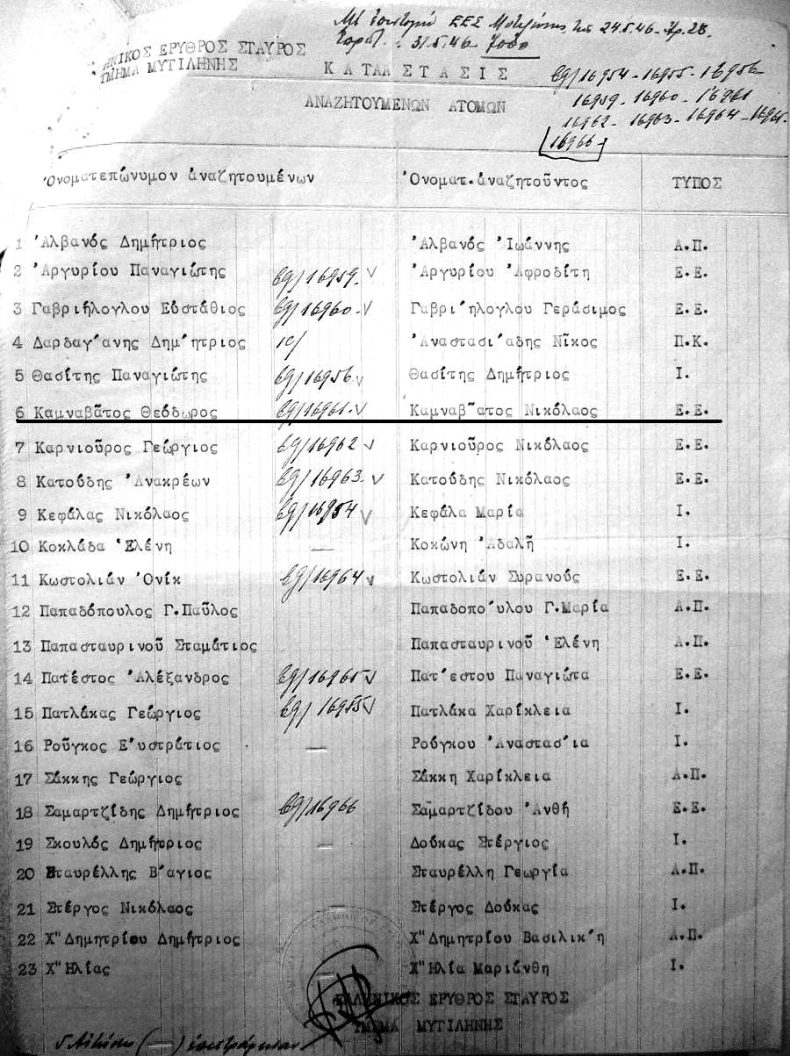 Μὲ ἐπιστολὴ ΕΕΣ Μυτιλήνης τῆς 24.5.46 - Ἀρ. 28.
31.5.46 7000
ΕΛΛΗΝΙΚΟΣ ΕΡΥΘΡΟΣ ΣΤΑΥΡΟΣ
ΤΜΗΜΑ ΜΥΤΙΛΗΝΗΣ
ΚΑΤΑΣΤΑΣΙΣ
ΑΝΑΖΗΤΟΥΜΕΝΩΝ ΑΤΟΜΩΝ
Eg/16954-16955-16956-
16959-16960-16961
16962-16963-16964-16965-
16966-
Ὀνοματεπώνυμον ἀναζητουμένων Ὀνοματ.ἀναζητοῦντος ΤΥΠΟΣ
1 Ἀλβανός Δημήτριος Ἀλβανός Ἰωάννης Α.Π.
2 Ἀργυρίου Παναγιώτης Eg/16959 √ Ἀργυρίου Ἀφροδίτη Ε.Ε.
3 Γαβριήλογλου Εὐστάθιος Eg/16960 √ Γαβρι'ηλογλου Γεράσιμος Ε.Ε.
4 Δαρδαγ'ανης Δημ'ητριος 1c/ Ἀναστασι'αδης Νῖκος Π.Κ.
5 Θασίτης Παναγιώτης Eg/16956 √ Θασίτης Δημήτριος Ι.
6 Καμναβᾶτος Θεόδωρος Eg/16961 √ Καμναβ῀ατος Νικόλαος Ε.Ε.
7 Καρνιοῦρος Γεώργιος Eg/16962 √ Καρνιοῦρος Νικόλαος Ε.Ε.
8 Κατούδης Ἀνακρέων Eg/16963 √ Κατούδης Νικόλαος Ε.Ε.
9 Κεφάλας Νικόλαος Eg/16954 √ Κεφάλα Μαρία Ι.
10 Κοκλάδα Ἑλένη — Κοκώνη Ἀδαλῆ Ι.
11 Κωστολιάν Ὀνίκ Eg/16964 √ Κωστολιάν Συρανούς Ε.Ε.
12 Παπαδόπουλος Γ.Παῦλος Παπαδοπο'υλου Γ.Μαρία Α.Π.
13 Παπασταυρινοῦ Σταμάτιος Παπασταυρινοῦ Ἑλένη Α.Π.
14 Πατέστος Ἀλέξανδρος Eg/16965 √ Πατ'εστου Παναγιώτα Ε.Ε.
15 Πατλάκας Γεώργιος Eg/16955 √ Πατλάκα Χαρίκλεια Ι.
16 Ροῦγκος Ε'υστράτιος — Ρούγκου Ἀναστασ'ια Ι.
17 Σάκκης Γεώργιος Σάκκη Χαρίκλεια Α.Π.
18 Σαμαρτζίδης Δημήτριος Eg/16966 Σαμαρτζίδου Ἀνθή Ε.Ε.
19 Σκουλός Δημήτριος — Δούκας Στέργιος Ι.
20 Σταυρέλλης Β'αγιος Σταυρέλλη Γεωργία Α.Π.
21 Στέργος Νικόλαος Στέργος Δούκας Ι.
22 Χ" Δημητρίου Δημήτριος Χ" Δημητρίου Βασιλικ'η Α.Π.
23 Χ" Ηλίας Χ" Ηλία Μαριάνθη Ι.
ΕΛΛΗΝΙΚΟΣ ΕΡΥΘΡΟΣ ΣΤΑΥΡΟΣ
ΤΜΗΜΑ ΜΥΤΙΛΗΝΗΣ